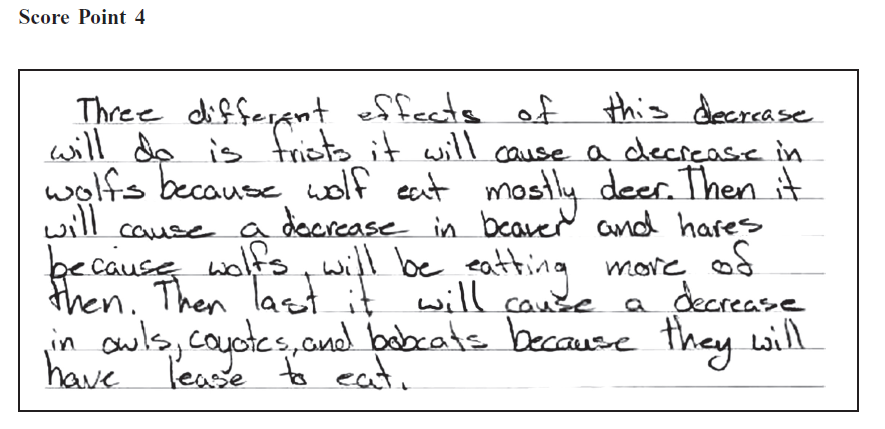 Score Point 4
Three different effects of this decrease
will do is frists it will cause a decrease in
wolfs because wolf eat mostly deer. Then it
will cause a decrease in beaver and hares
because wolfs, will be eatting more of
then. Then last it will cause a decrease
in owls, coyotes, and bobcats because they will
have lease to eat.